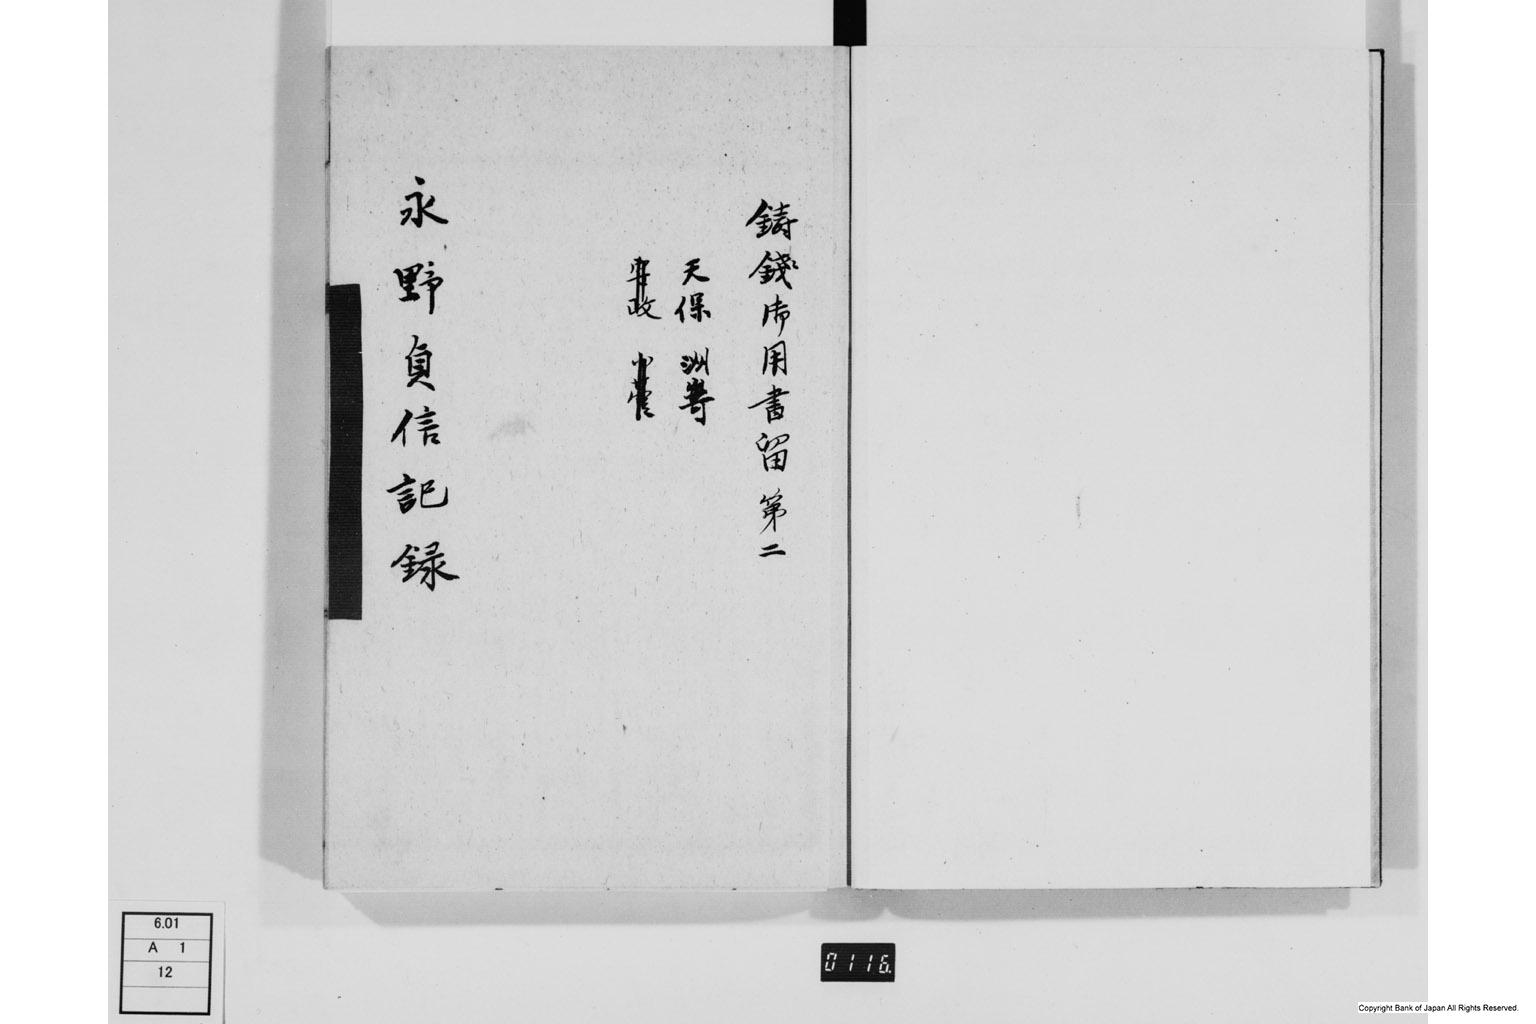 鋳錢御用書留 第二
天保 洲嵜
安政 小菅
永野貞信記録
6.01
A 1
12
0116
Copyright Bank of Japan All Rights Reserved.